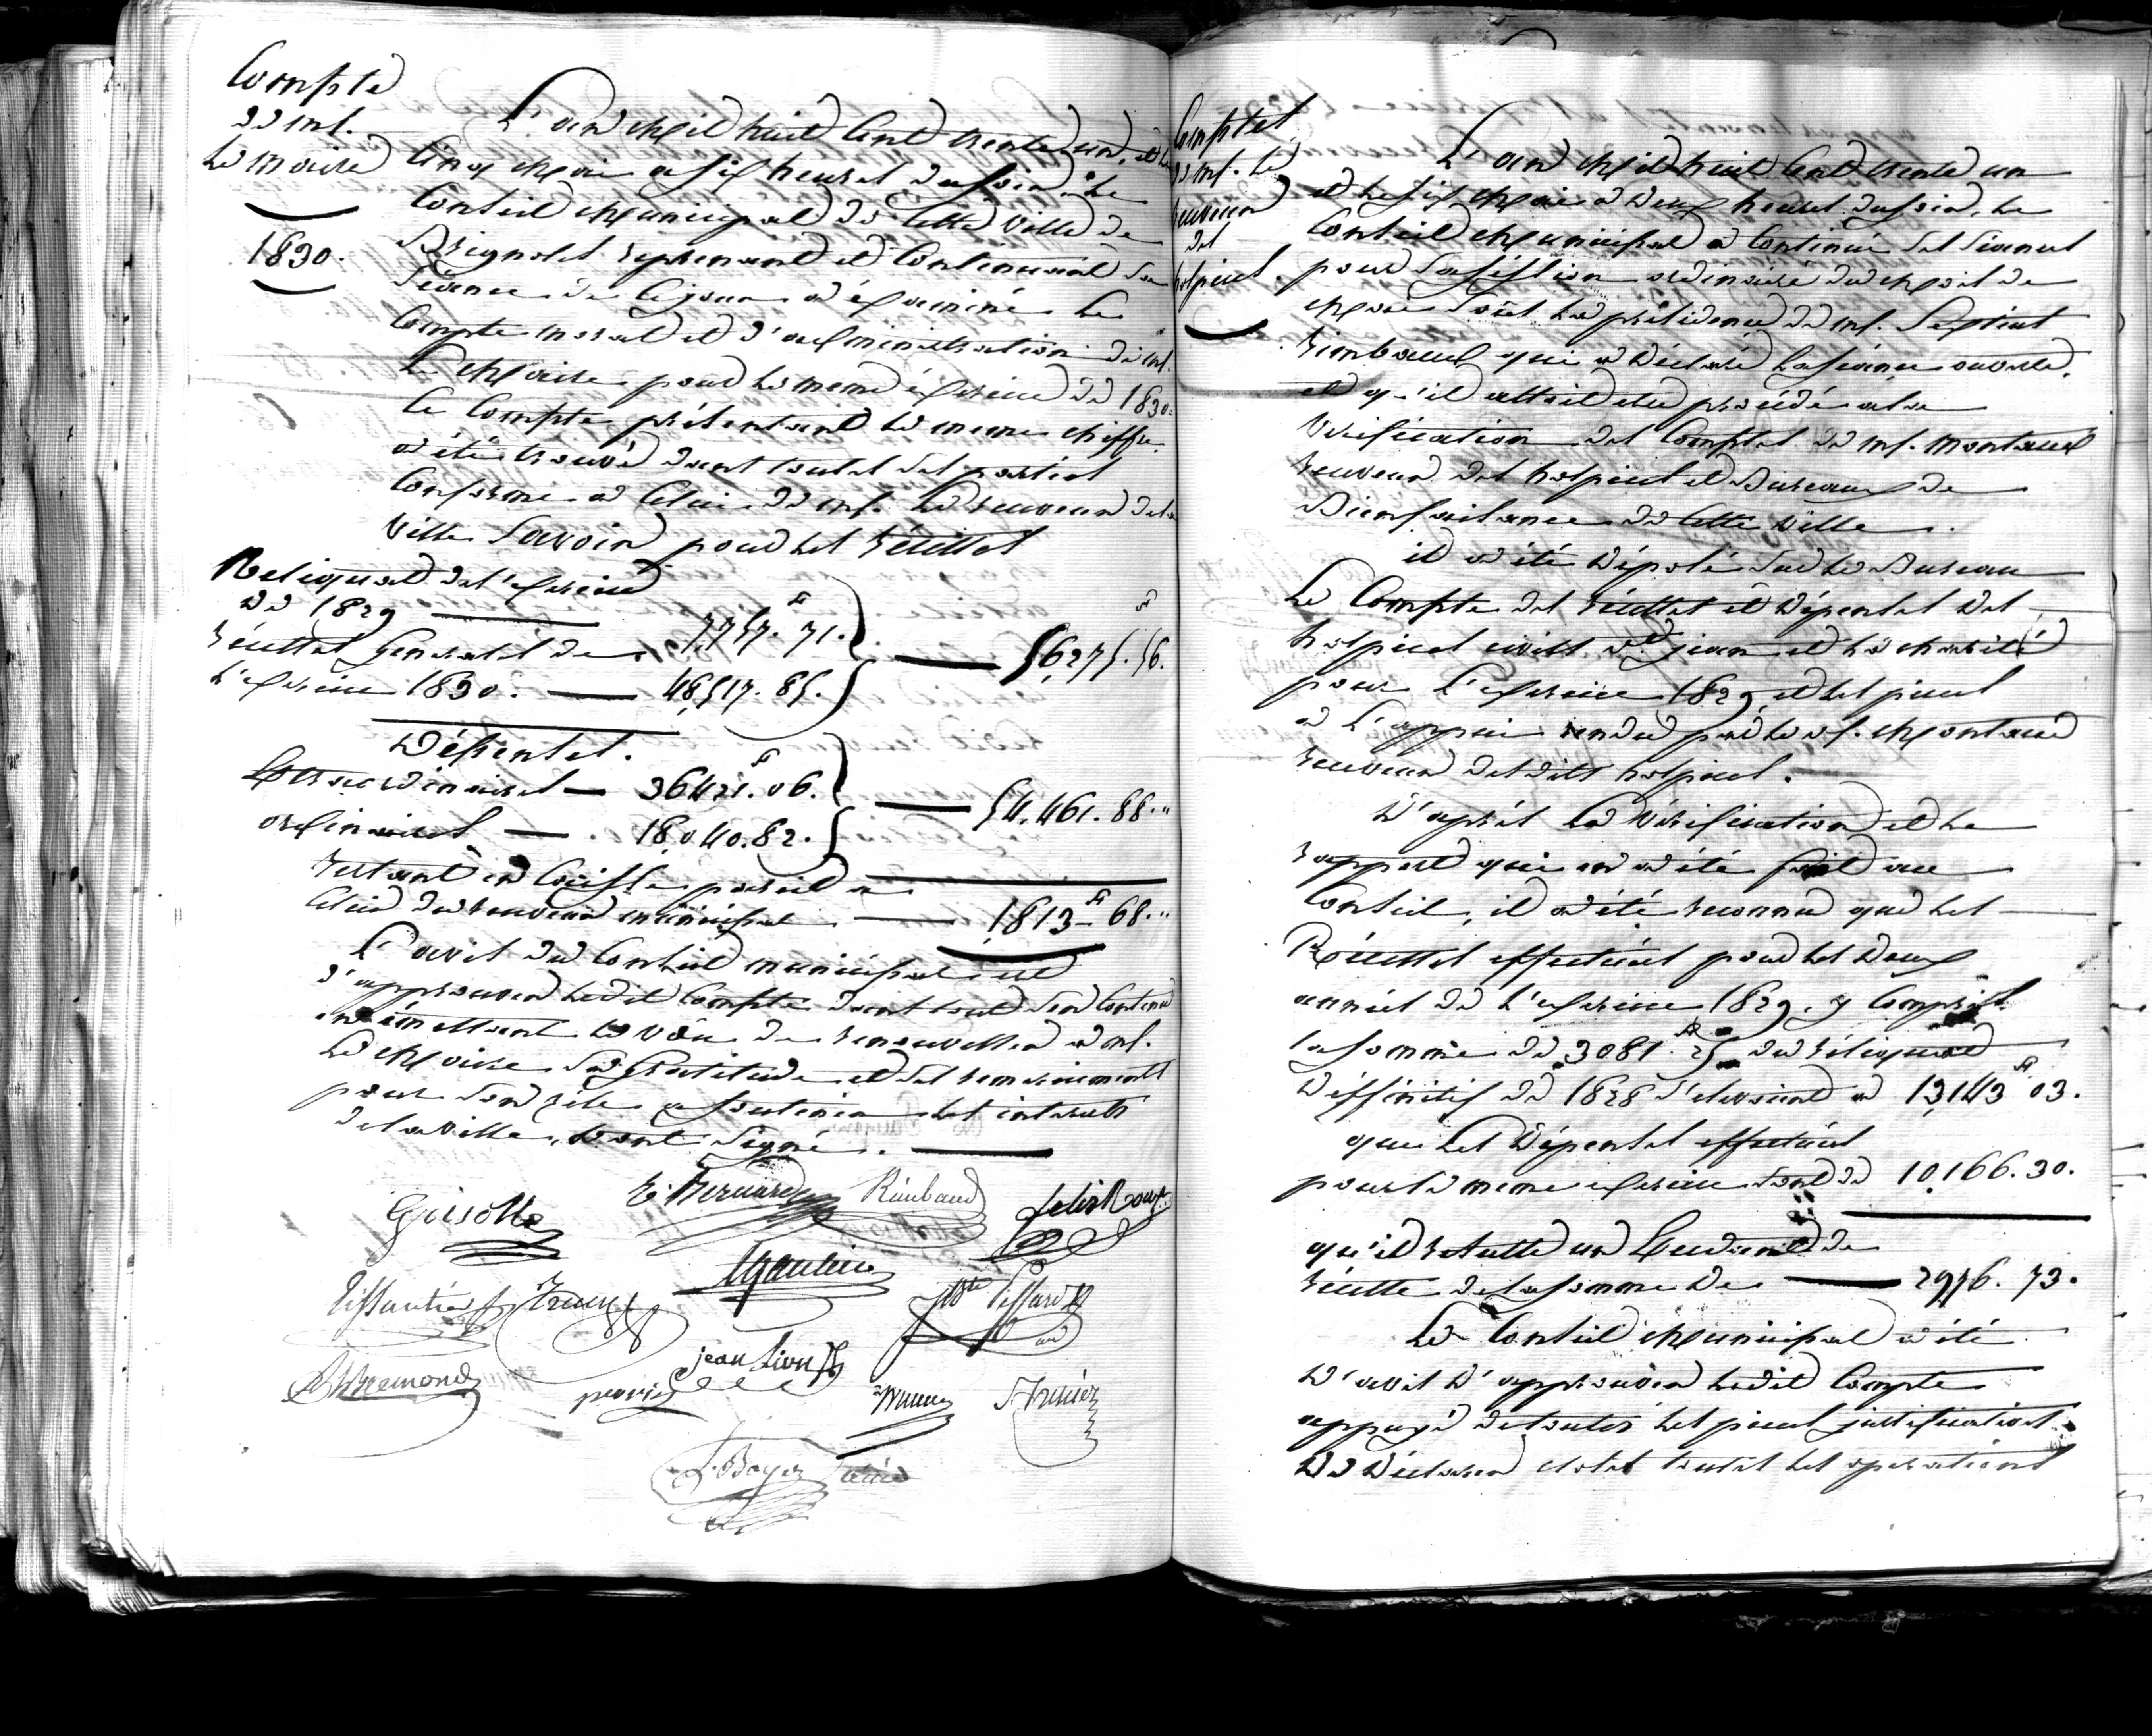 Compte
de M.
le Maire
1830.
L'an Mil huit Cent trente un, et le
Cinq Mai a six heures du soir, le
Conseil Municipal de Cette Ville de
Brignoles reprenant et Continuant sa
Séance de Ce jour a éxaminé le
Compte moral et d'administration de M.
le Maire pour le meme éxercice de 1830.
Ce Compte présentant le meme chiffre
a été trouvé dans toutes ses parties
Conforme a Celui de M. le receveur de la
Ville Savoir pour les récettes
Reliquat de l'exercice
de 1829 — 7757.f 71.
récettes generales de
l'exercice 1830. — 48,517. 85. — 56,275.f 56.
Dépenses.
Extraordinaires — 36421.f 06.
ordinaires — 18,040. 82. — 54,461. 88."
restant en Caisse pareil a
Celui du receveur municipal — 1,813f 68."
L'avis du Conseil municipal est
d'approuver ledit Compte dans tout son Contenu
en émettant le vœu de renouveller a M.
le Maire sa gratitude et ses remerciements
pour son zèle a soutenir les interets
de la ville, et ont Signé.
E. Bernard Raubaud felix Roux
Gautier
jean Lion
A. Bremond
L. Boyer
Comptes
de M. le
receveur
des
hospices.
L'an Mil huit Cent trente un
et le six Mai a deux heures du soir, le
Conseil Municipal a Continué ses séances
pour sa session ordinaire du mois de
Mai Sous la présidence de M.
rimbaud qui a déclaré la séance ouverte,
et qu'il allait etre procédé a la
Vérification des Comptes de M. Montaud
receveur des hospices et Bureau de
Bienfaisance de Cette Ville.
il a été déposé sur le Bureau
Le Compte des récettes et dépenses des
hospices civils St. jean et la charité
pour l'exercice 1829 et les pieces
a l'appui rendu par le M. Montaud
receveur desdits hospices.
D'après la vérification et le
rapport qui en a été fait au
Conseil, il a été reconnu que les
Récettes effectuées pour les deux
années de l'exercice 1829. y Compris
la somme de 3081.f 25 du réliquat
déffinitif de 1828 s'elevaient a 13,143f 03.
que les dépenses effectuées
pour le meme exercice sont de 10,166. 30.
qu'il résulte un Excedant de
récette de la somme de — 2976. 73.
Le Conseil Municipal a été
d'avis d'approuver ledit Compte
appuyé de toutes les pieces justificatives
de déclarer closes toutes les operations